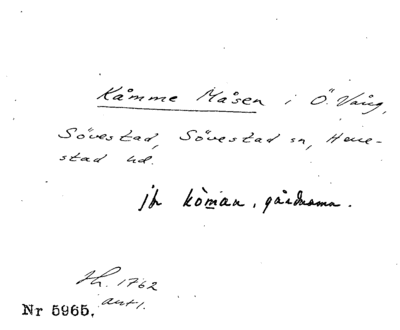 Kåmme Måsen i Ö. Vång,
Sövestad, Sövestad sn, Herre-
stad hd.
jfr kòman, gårdnamn.
1762
antl.
Nr 5965.